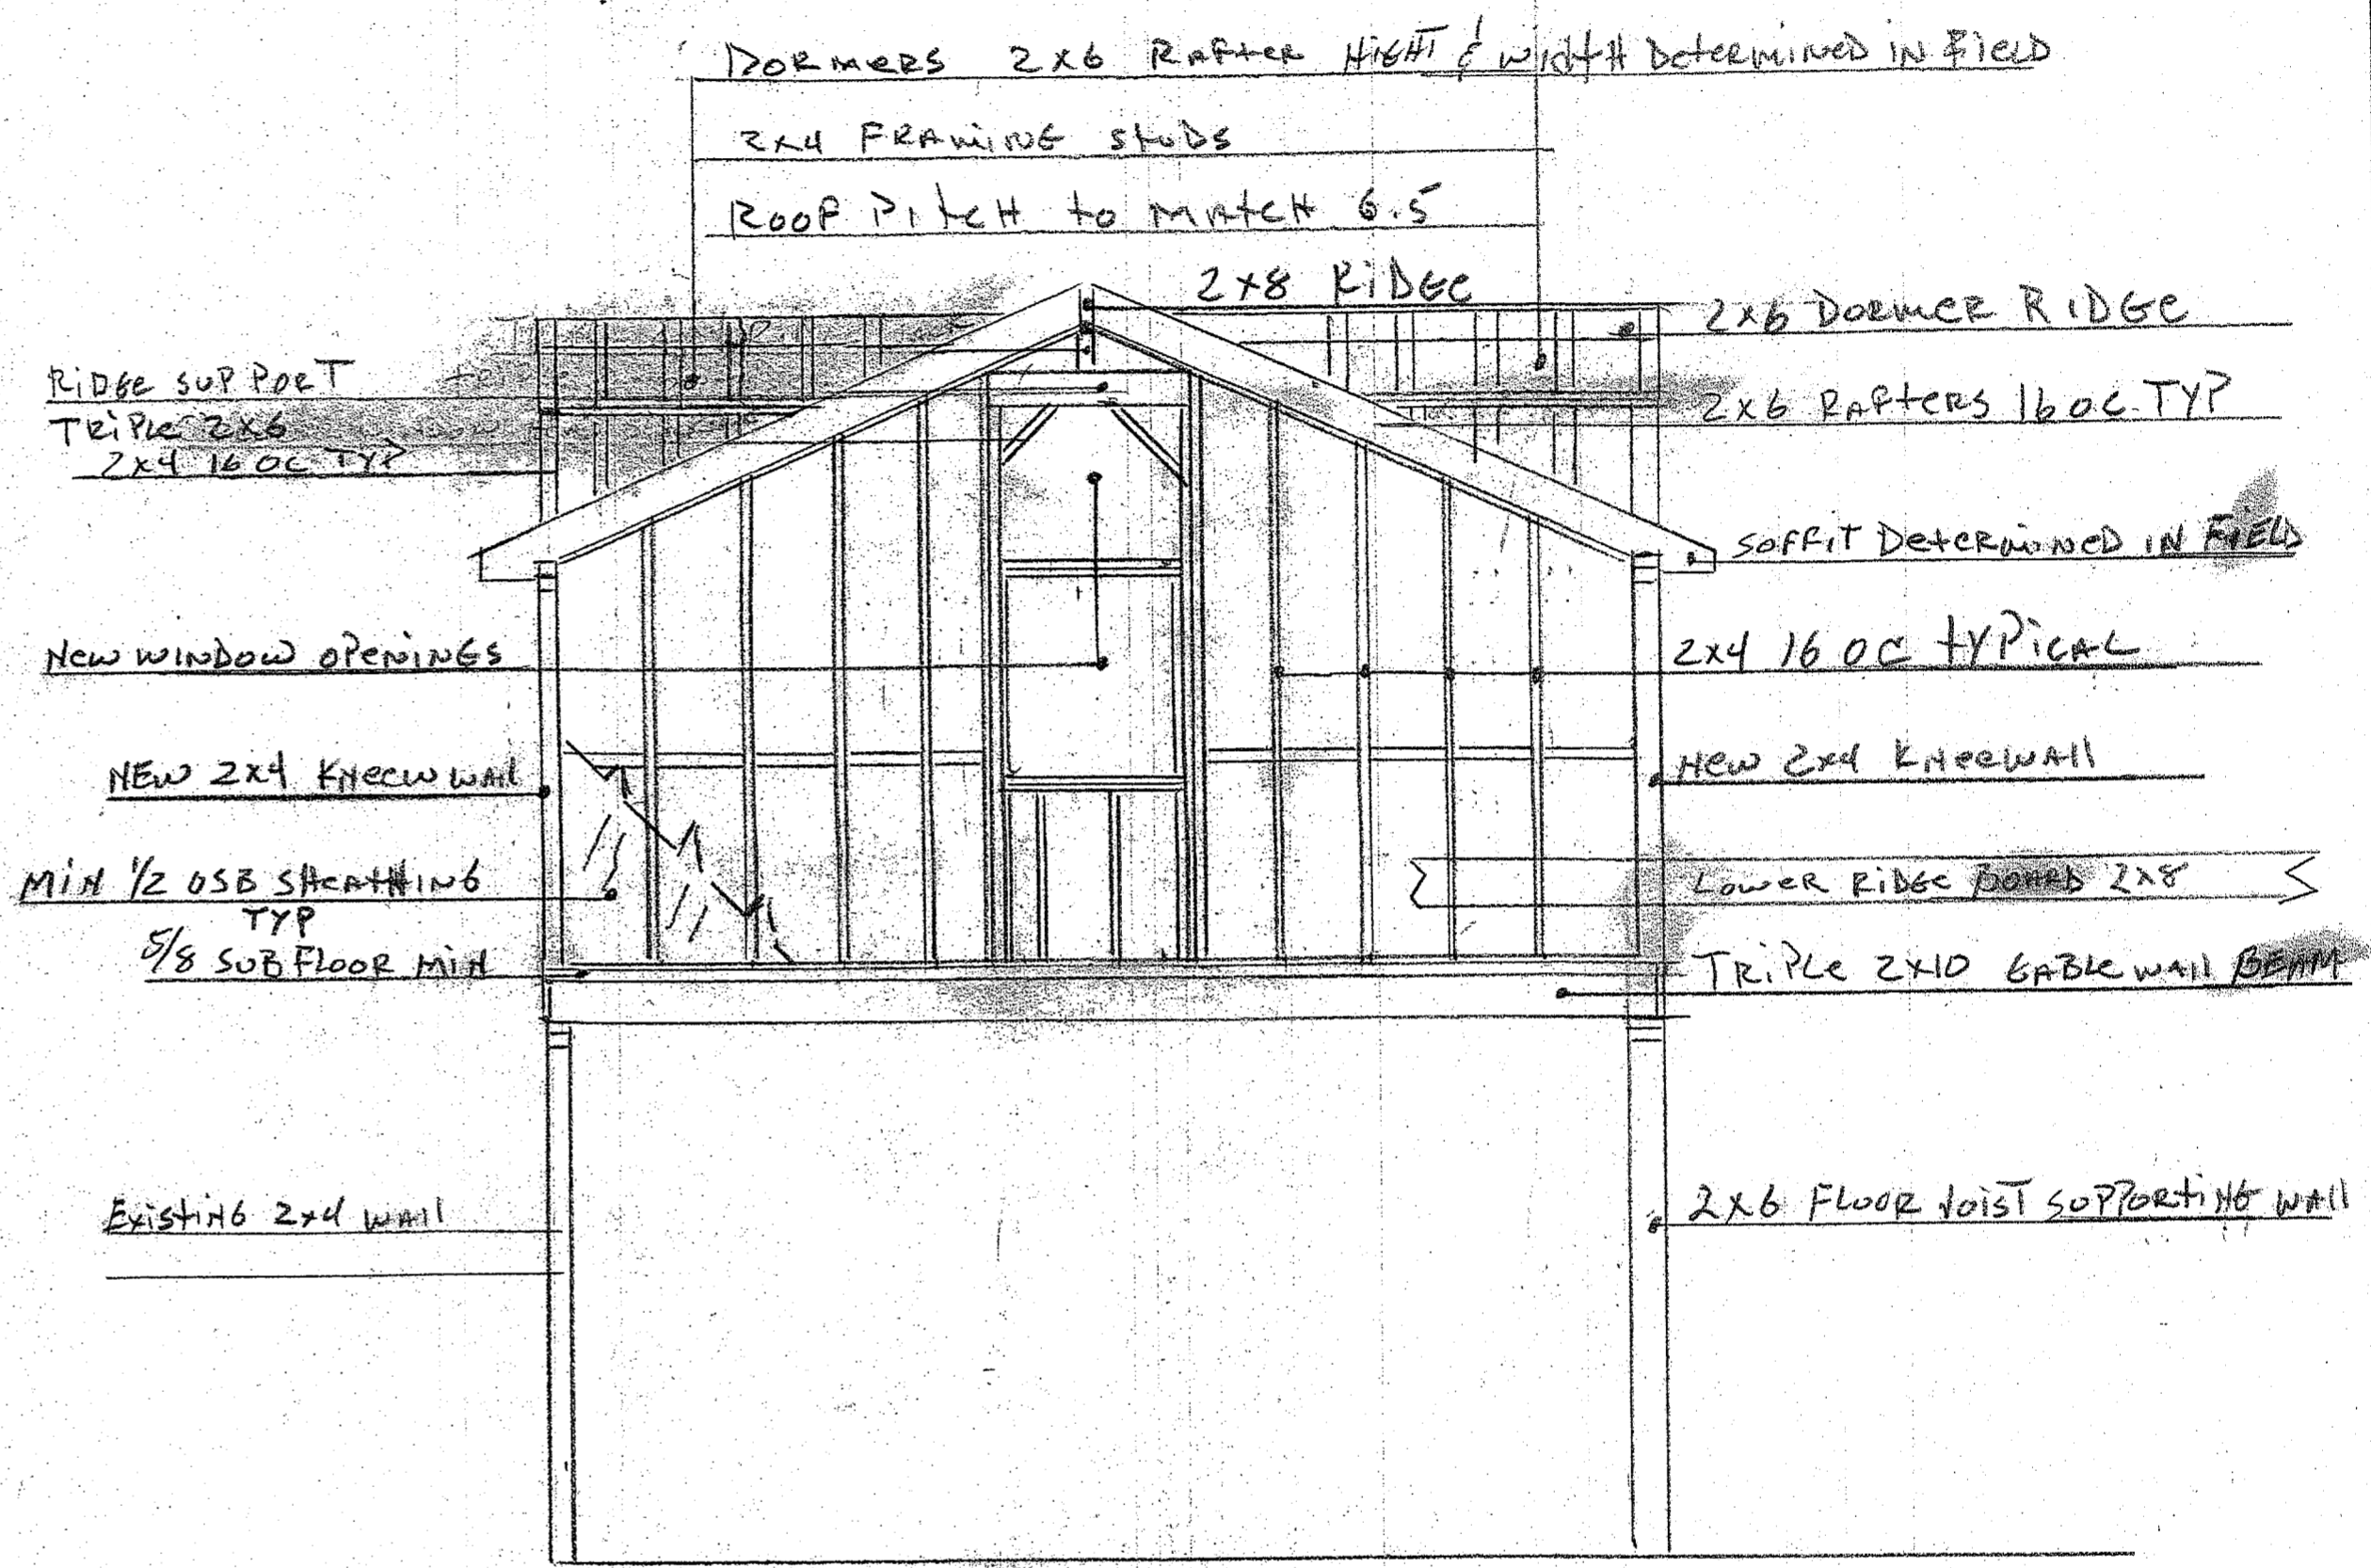 DORMERS 2x6 RAFTER HIGHT & WIDTH DETERMINED IN FIELD
2x4 FRAMING STUDS
ROOF PITCH TO MATCH 6.5
2x8 RIDGE
2x6 DORMER RIDGE
RIDGE SUPPORT
TRIPLE 2x6
2x4 16 OC TYP
2x6 RAFTERS 16 OC TYP
SOFFIT DETERMINED IN FIELD
NEW WINDOW OPENINGS
2x4 16 OC TYPICAL
NEW 2x4 KNEEWWALL
NEW 2x4 KNEEWALL
MIN 1/2 OSB SHEATHING
TYP
LOWER RIDGE BOARD 2x8
5/8 SUBFLOOR MIN
TRIPLE 2x10 GABLE WALL BEAM
EXISTING 2x4 WALL
2x6 FLOOR JOIST SUPPORTING WALL